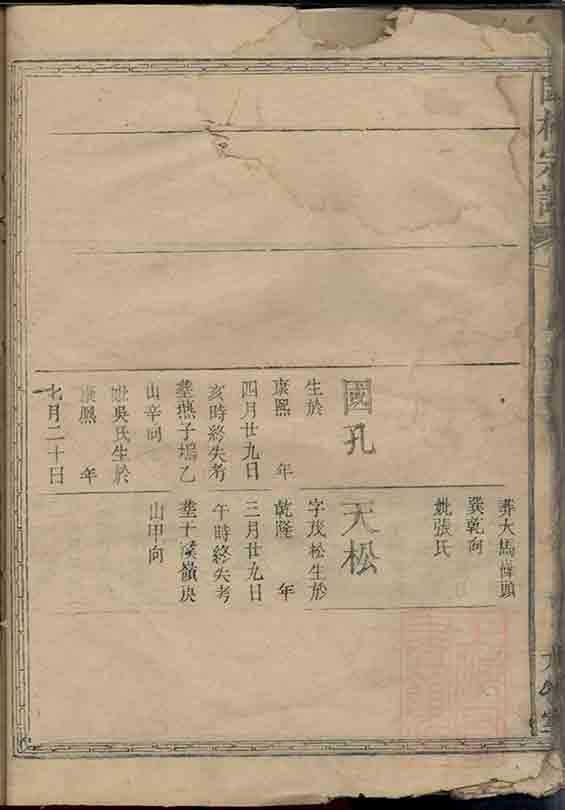 宗譜
國孔
生於
康熙 年
四月廿九日
亥時終失考
塟燕子塢乙
山辛向
妣吳氏生於
康熙 年
七月二十日
葬大馬
頭
巽乾向
妣張氏
天松
字茂松生於
乾隆 年
三月廿九日
午時終失考
塟十
嶺庚
山甲向